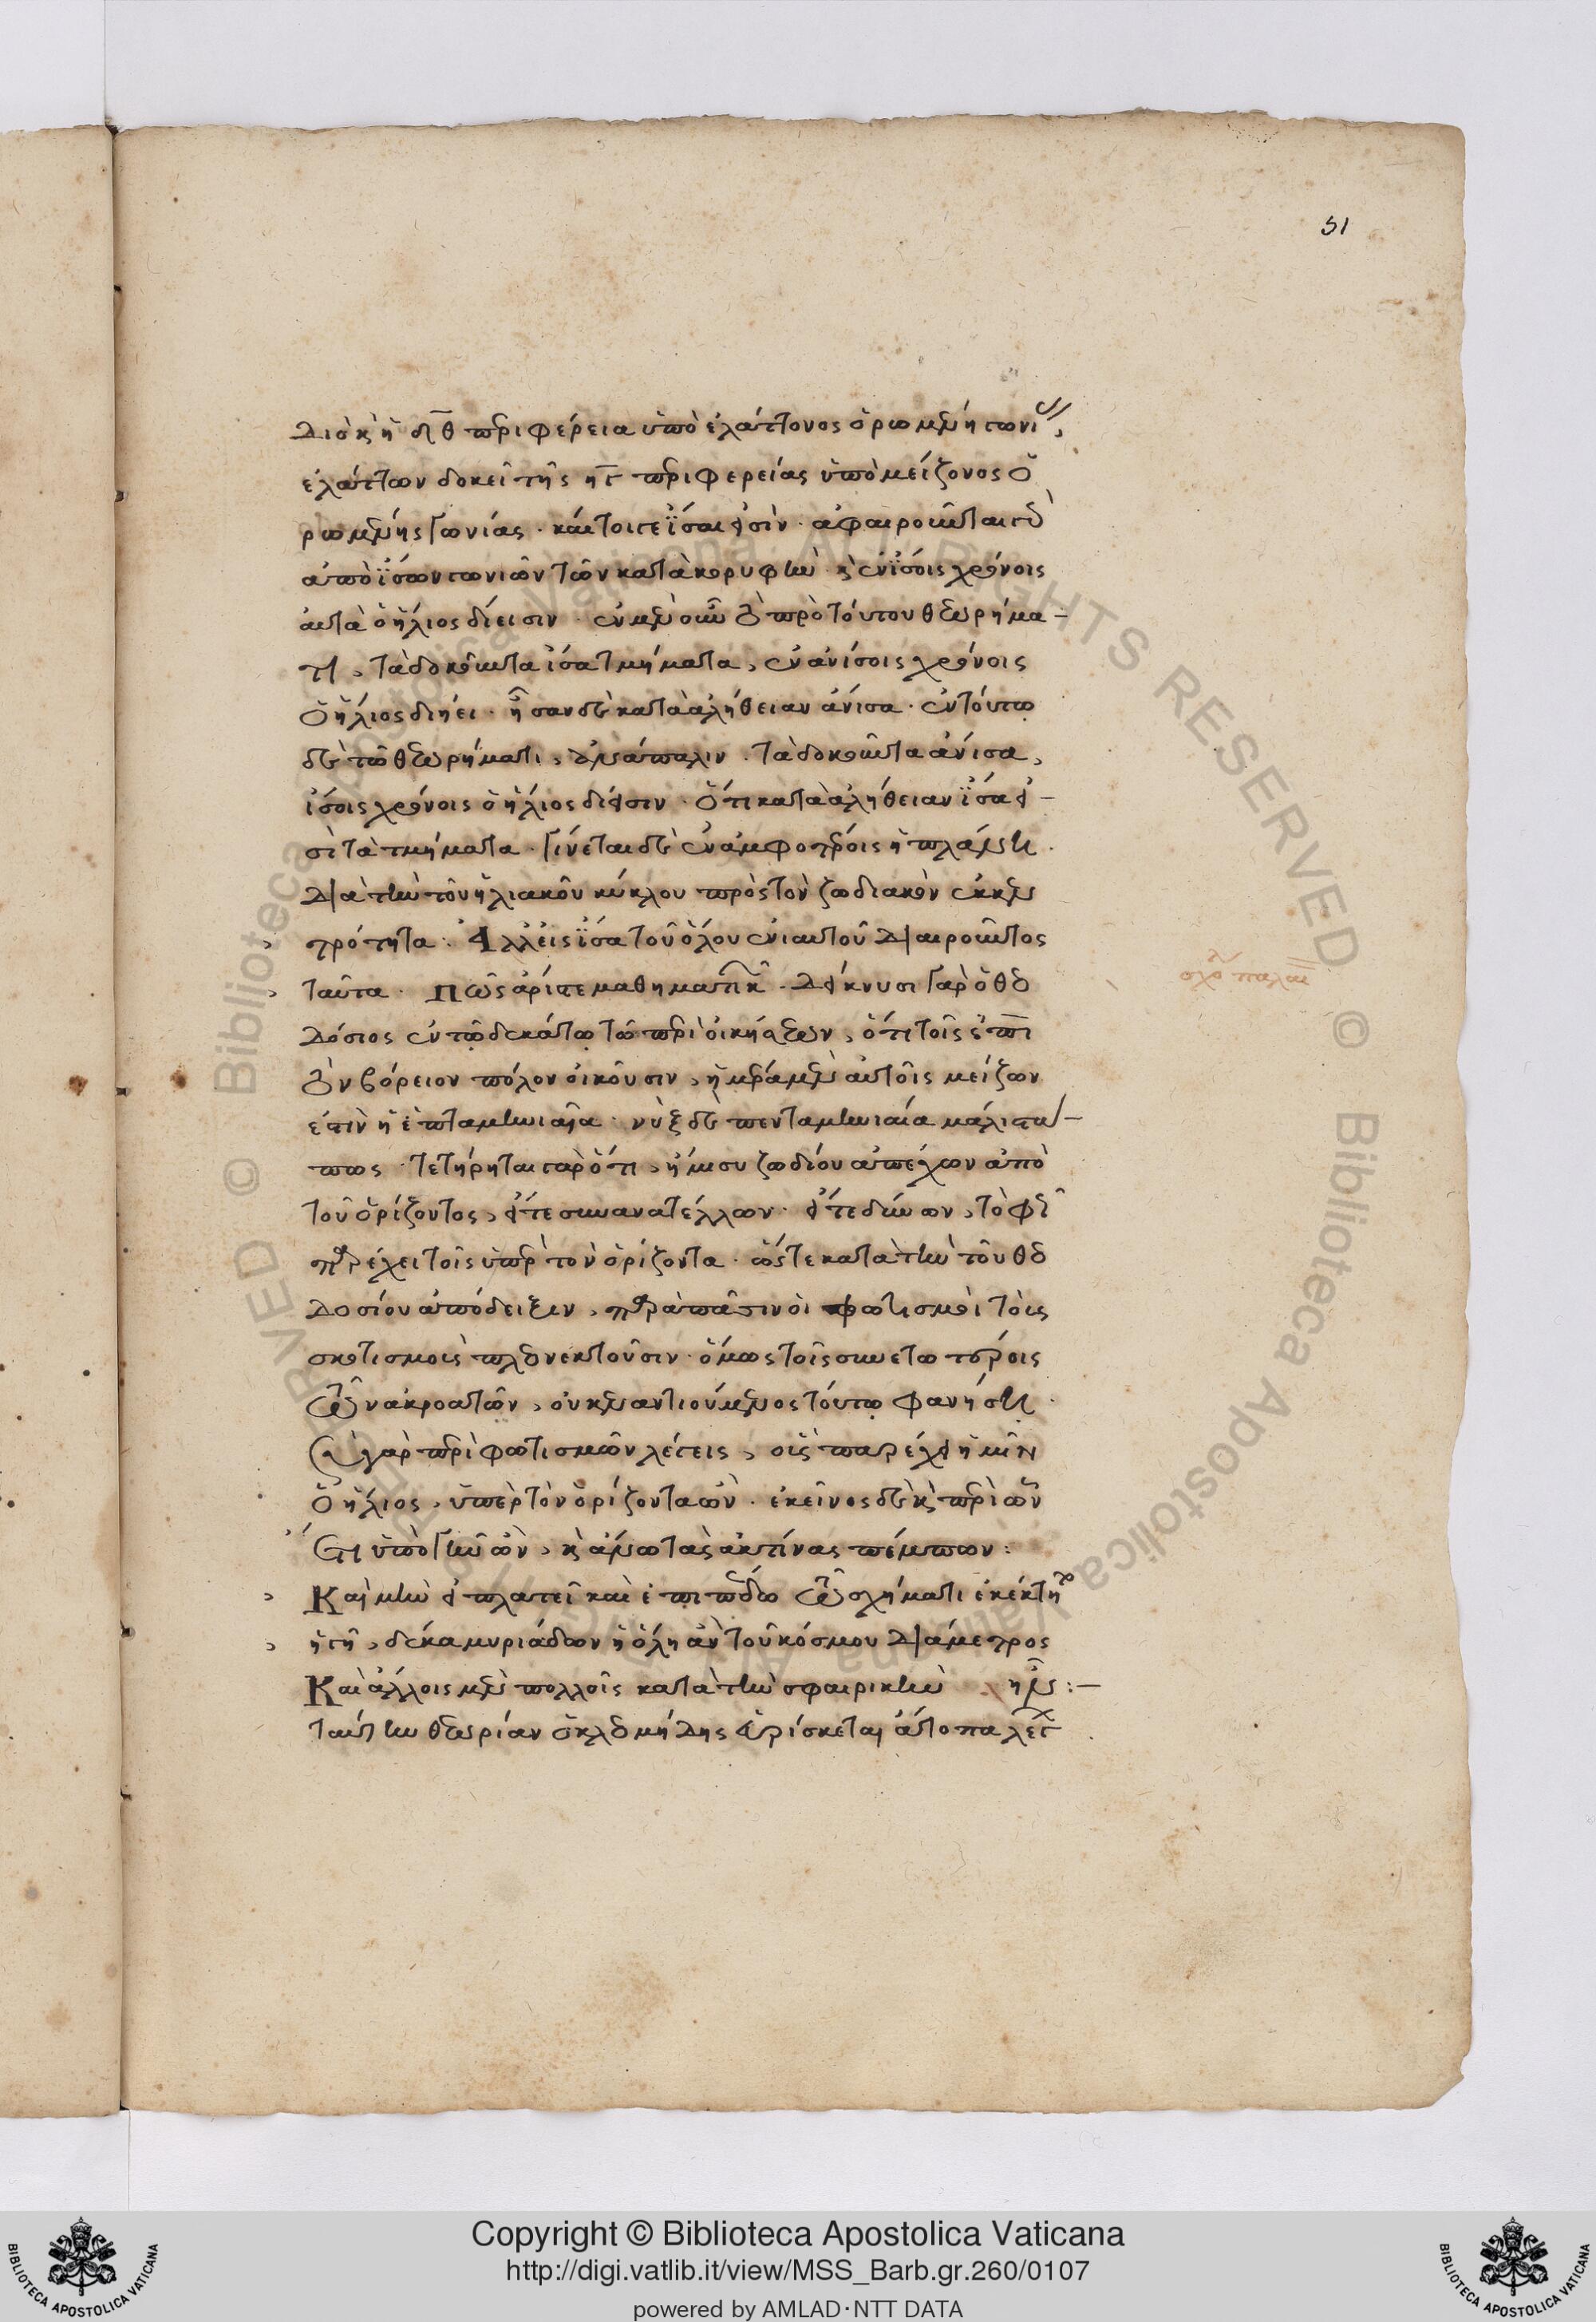 51
Διὸ κ̀ ἡ δ̅θ̅ περιφέρεια ὑπὸ ἐλάττονος ὁρωμένη γωνί
ἐλάττων δοκεῖ τῆς η̅γ̅ περιφερείας ὑπὸ μείζονος ὁ
ρωμένης γωνίας. καίτοιγε ἴσαι εἰσίν. ἀφαιροῦνται γὰρ
ἀπὸ ἴσων γωνιῶν τῶν κατὰ κορυφήν. κ̀ ἐν ἴσοις χρόνοις
αὐτὰ ὁ ἥλιος δίεισιν. ἐν μὲν οὖν τῷ πρὸ τούτου θεωρήμα-
τι, τὰ δοκοῦντα ἴσα τμήματα, ἐν ἀνίσοις χρόνοις
ὁ ἥλιος διήει. ἦσαν δὲ κατὰ ἀλήθειαν ἄνισα. ἐν τούτῳ
δὲ τῷ θεωρήματι, ἀνάπαλιν. τὰ δοκοῦντα ἄνισα,
ἴσοις χρόνοις ὁ ἥλιος δίεισιν. ὅτι κατὰ ἀλήθειαν ἴσα εἰ-
σὶ τὰ τμήματα. γίνεται δὲ ἐν ἀμφοτέροις ἡ πλάνη.
Διὰ τὴν τοῦ ἡλιακοῦ κύκλου πρὸς τὸν ζωδιακὸν ἐκκεν
τρότητα. Ἀλλ' εἰς ἴσα τοῦ ὅλου ἐνιαυτοῦ διαιροῦντος
ταῦτα. Πῶς ἄριστε μαθηματικῶν. Δείκνυσι γὰρ ὁ Θεο
δόσιος ἐν τῷ δεκάτῳ τῶ περὶ οἰκήσεων, ὅτι τοῖς ἐπὶ
τὸν βόρειον πόλον οἰκοῦσιν, ἡμέρα μὲν αὐτοῖς μείζων
ἐστὶν ἢ ἑπταμηνιαῖα. νὺξ δὲ πενταμηνιαία μάλιστά-
πως. τετήρηται γὰρ ὅτι, ἥμισυ ζωδίου ἀπέχων ἀπὸ
τοῦ ὁρίζοντος, εἴτε συνανατέλλων. εἴτε δύνων, τὸ φῶς
παρέχει τοῖς ὑπὲρ τὸν ὁρίζοντα. ὥστε κατὰ τὴν τοῦ Θεο
δοσίου ἀπόδειξιν, παρὰ πᾶσιν οἱ φωτισμοὶ τοὺς
σκοτισμοὺς πλεονεκτοῦσιν. ὅμως τοῖς συνετωτέροις
τῶν ἀκροατῶν, οὐκ ἐναντιούμενος τούτῳ φανήσῃ.
Σὺ γὰρ περὶ φωτισμῶν λέγεις, οἷς παρέχει ἡμῖν
ὁ ἥλιος, ὑπὲρ τὸν ὁρίζοντα ὤν. ἐκεῖνος δὲ κ̀ περὶ ὧν
ἔτι ὑπὸ γῆν ὤν, κ̀ ἄνω τὰς ἀκτίνας πέμπων:
Καὶ μὴν εἰ πλατεῖ καὶ ἐπιπέδῳ τῷ σχήματι ἐκέκτητο
ἡ γῆ, δέκα μυριάδων ἡ ὅλη ἂν τοῦ κόσμου διάμετρος ἦν:-
Καὶ ἄλλοις μὲν πολλοῖς κατὰ τὴν σφαιρικὴν
ταύτην θεωρίαν ὁ Κλεομήδης εὑρίσκεται ἄτοπα λέγ
Copyright © Biblioteca Apostolica Vaticana
http://digi.vatlib.it/view/MSS_Barb.gr.260/0107
powered by AMLAD·NTT DATA